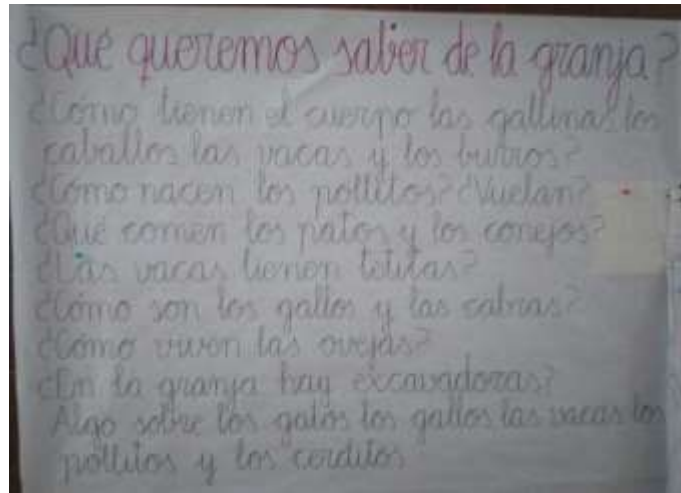 ¿Qué queremos saber de la granja?
¿Cómo tienen el cuerpo las gallinas los
caballos las vacas y los burros?
¿Cómo nacen los pollitos? ¿Vuelan?
¿Qué comen los patos y los conejos?
¿Las vacas tienen tetitas?
¿Cómo son los gallos y las cabras?
¿Cómo viven las ovejas?
¿En la granja hay excavadoras?
Algo sobre los gatos los gallos las vacas los
pollitos y los cerditos